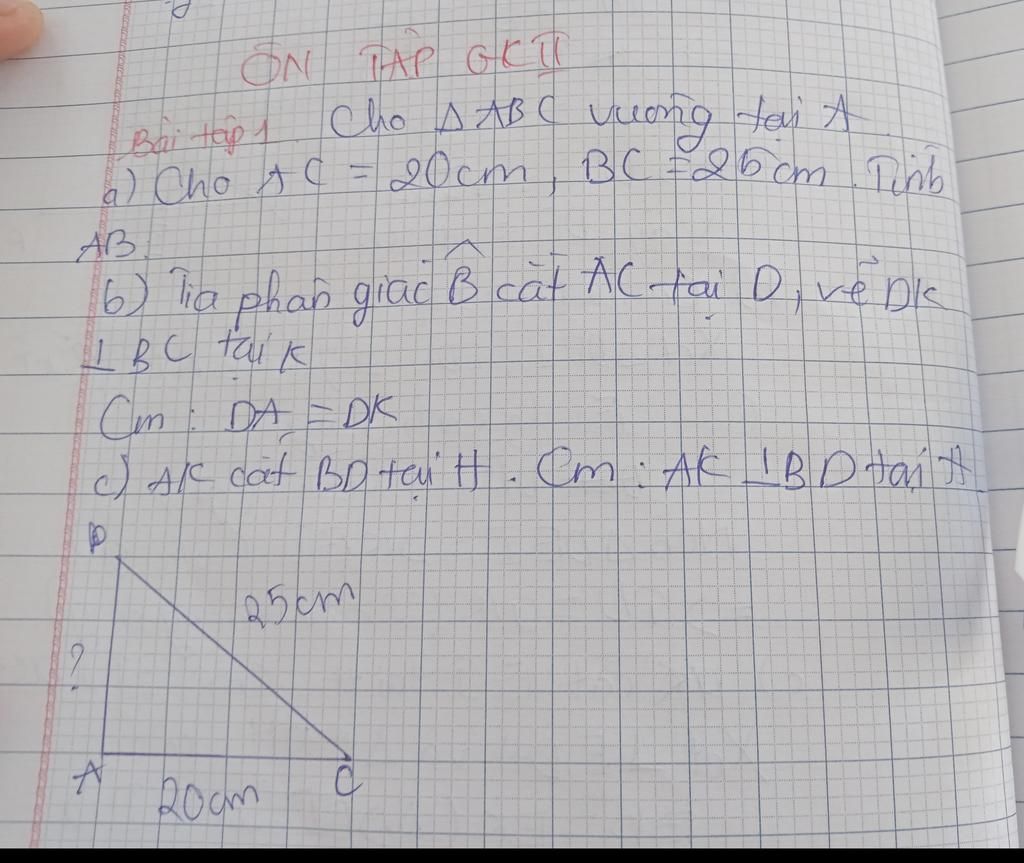 ÔN TẬP GKII
Bài tập 1 Cho Δ ABC vuông tại A
a) Cho AC = 20cm, BC = 25cm. Tính
AB.
b) Tia phân giác B̂ cắt AC tại D, vẽ DK
⊥ BC tại K
Cm: DA = DK
c) AK cắt BD tại H. Cm: AK ⊥ BD tại H
B
25cm
?
A
20cm
C